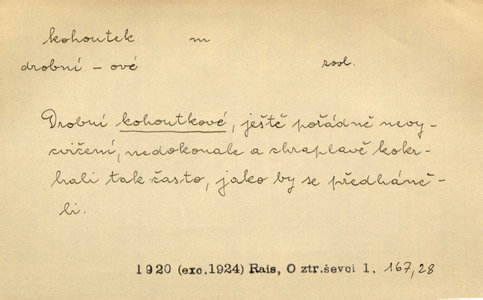 kohoutek m
drobní – ové zool.
Drobní kohoutkové, ještě pořádně nevy-
cvičení, nedokonale a chraplavě kokr-
hali tak často, jako by se předháně-
li.
1920 (exc.1924) Rais, O ztr.ševci 1. 167,28